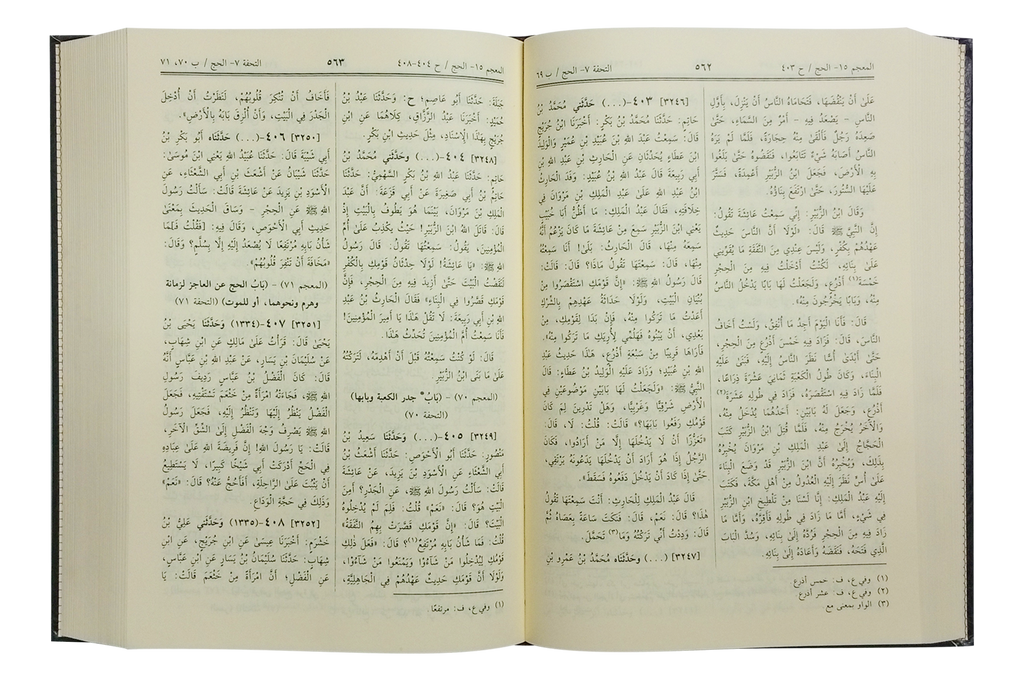 المعجم ١٥- الحج / ح ٤٠٣ ٥٦٢ التحفة ٧- الحج / ب ٦٩
عَلَىٰ أَنْ يَنْقُضَهَا، فَتَحَامَاهُ النَّاسُ أَنْ يَنْزِلَ، بِأَوَّلِ
النَّاسِ - يَصْعَدُ فِيهِ - أَمْرٌ مِنَ السَّمَاءِ، حَتَّىٰ
صَعِدَهُ رَجُلٌ فَأَلْقَىٰ مِنْهُ حِجَارَةً، فَلَمَّا لَمْ يَرَهُ
النَّاسُ أَصَابَهُ شَيْءٌ تَتَابَعُوا، فَنَقَضُوهُ حَتَّىٰ بَلَغُوا
بِهِ الْأَرْضَ، فَجَعَلَ ابْنُ الزُّبَيْرِ أَعْمِدَةً، فَسَتَّرَ
عَلَيْهَا السُّتُورَ، حَتَّىٰ ارْتَفَعَ بِنَاؤُهُ.
وَقَالَ ابْنُ الزُّبَيْرِ: إِنِّي سَمِعْتُ عَائِشَةَ تَقُولُ:
إِنَّ النَّبِيَّ ﷺ قَالَ: «لَوْلَا أَنَّ النَّاسَ حَدِيثٌ
عَهْدُهُمْ بِكُفْرٍ، وَلَيْسَ عِنْدِي مِنَ النَّفَقَةِ مَا يُقَوِّينِي
عَلَىٰ بِنَائِهِ، لَكُنْتُ أَدْخَلْتُ فِيهِ مِنَ الْحِجْرِ
خَمْسَةَ(١) أَذْرُعٍ، وَلَجَعَلْتُ لَهَا بَابًا يَدْخُلُ النَّاسُ
مِنْهُ، وَبَابًا يَخْرُجُونَ مِنْهُ».
قَالَ: فَأَنَا الْيَوْمَ أَجِدُ مَا أُنْفِقُ، وَلَسْتُ أَخَافُ
النَّاسَ، قَالَ: فَزَادَ فِيهِ خَمْسَ أَذْرُعٍ مِنَ الْحِجْرِ،
حَتَّىٰ أَبْدَىٰ أُسًّا نَظَرَ النَّاسُ إِلَيْهِ، فَبَنَىٰ عَلَيْهِ
الْبِنَاءَ، وَكَانَ طُولُ الْكَعْبَةِ ثَمَانِيَ عَشْرَةَ ذِرَاعًا،
فَلَمَّا زَادَ فِيهِ اسْتَقْصَرَهُ، فَزَادَ فِي طُولِهِ عَشَرَةَ(٢)
أَذْرُعٍ، وَجَعَلَ لَهُ بَابَيْنِ: أَحَدُهُمَا يُدْخَلُ مِنْهُ،
وَالْآخَرُ يُخْرَجُ مِنْهُ، فَلَمَّا قُتِلَ ابْنُ الزُّبَيْرِ كَتَبَ
الْحَجَّاجُ إِلَىٰ عَبْدِ الْمَلِكِ بْنِ مَرْوَانَ يُخْبِرُهُ
بِذَٰلِكَ، وَيُخْبِرُهُ أَنَّ ابْنَ الزُّبَيْرِ قَدْ وَضَعَ الْبِنَاءَ
عَلَىٰ أُسٍّ نَظَرَ إِلَيْهِ الْعُدُولُ مِنْ أَهْلِ مَكَّةَ، فَكَتَبَ
إِلَيْهِ عَبْدُ الْمَلِكِ: إِنَّا لَسْنَا مِنْ تَلْطِيخِ ابْنِ الزُّبَيْرِ
فِي شَيْءٍ، أَمَّا مَا زَادَ فِي طُولِهِ فَأَقِرَّهُ، وَأَمَّا مَا
زَادَ فِيهِ مِنَ الْحِجْرِ فَرُدَّهُ إِلَىٰ بِنَائِهِ، وَسُدَّ الْبَابَ
الَّذِي فَتَحَهُ، فَنَقَضَهُ وَأَعَادَهُ إِلَىٰ بِنَائِهِ.
[٣٢٤٦] ٤٠٣-(...) حَدَّثَنِي مُحَمَّدُ بْنُ
حَاتِمٍ: حَدَّثَنَا مُحَمَّدُ بْنُ بَكْرٍ: أَخْبَرَنَا ابْنُ جُرَيْجٍ
قَالَ: سَمِعْتُ عَبْدَ اللهِ بْنَ عُبَيْدِ بْنِ عُمَيْرٍ وَالْوَلِيدَ
ابْنَ عَطَاءٍ يُحَدِّثَانِ عَنِ الْحَارِثِ بْنِ عَبْدِ اللهِ بْنِ
أَبِي رَبِيعَةَ قَالَ عَبْدُ اللهِ بْنُ عُبَيْدٍ: وَفَدَ الْحَارِثُ
ابْنُ عَبْدِ اللهِ عَلَىٰ عَبْدِ الْمَلِكِ بْنِ مَرْوَانَ فِي
خِلَافَتِهِ، فَقَالَ عَبْدُ الْمَلِكِ: مَا أَظُنُّ أَبَا خُبَيْبٍ
يَعْنِي ابْنَ الزُّبَيْرِ سَمِعَ مِنْ عَائِشَةَ مَا كَانَ يَزْعُمُ أَنَّهُ
سَمِعَهُ مِنْهَا، قَالَ الْحَارِثُ: بَلَىٰ! أَنَا سَمِعْتُهُ
مِنْهَا، قَالَ: سَمِعْتَهَا تَقُولُ مَاذَا؟ قَالَ: قَالَتْ:
قَالَ رَسُولُ اللهِ ﷺ: «إِنَّ قَوْمَكِ اسْتَقْصَرُوا مِنْ
بُنْيَانِ الْبَيْتِ، وَلَوْلَا حَدَاثَةُ عَهْدِهِمْ بِالشِّرْكِ
أَعَدْتُ مَا تَرَكُوا مِنْهُ، فَإِنْ بَدَا لِقَوْمِكِ، مِنْ
بَعْدِي، أَنْ يَبْنُوهُ فَهَلُمِّي لِأُرِيَكِ مَا تَرَكُوا مِنْهُ».
فَأَرَاهَا قَرِيبًا مِنْ سَبْعَةِ أَذْرُعٍ، هَٰذَا حَدِيثُ عَبْدِ
اللهِ بْنِ عُبَيْدٍ؛ وَزَادَ عَلَيْهِ الْوَلِيدُ بْنُ عَطَاءٍ: قَالَ
النَّبِيُّ ﷺ: «وَلَجَعَلْتُ لَهَا بَابَيْنِ مَوْضُوعَيْنِ فِي
الْأَرْضِ شَرْقِيًّا وَغَرْبِيًّا، وَهَلْ تَدْرِينَ لِمَ كَانَ
قَوْمُكِ رَفَعُوا بَابَهَا؟» قَالَتْ: قُلْتُ: لَا، قَالَ:
«تَعَزُّزًا أَنْ لَا يَدْخُلَهَا إِلَّا مَنْ أَرَادُوا، فَكَانَ
الرَّجُلُ إِذَا هُوَ أَرَادَ أَنْ يَدْخُلَهَا يَدَعُونَهُ يَرْتَقِي،
حَتَّىٰ إِذَا كَادَ أَنْ يَدْخُلَ دَفَعُوهُ فَسَقَطَ».
قَالَ عَبْدُ الْمَلِكِ لِلْحَارِثِ: أَنْتَ سَمِعْتَهَا تَقُولُ
هَٰذَا؟ قَالَ: نَعَمْ، قَالَ: فَنَكَتَ سَاعَةً بِعَصَاهُ ثُمَّ
قَالَ: وَدِدْتُ أَنِّي تَرَكْتُهُ وَمَا(٣) تَحَمَّلَ.
[٣٢٤٧] (...) وَحَدَّثَنَاه مُحَمَّدُ بْنُ عَمْرِو بْنِ
(١) وفي ع، ف: خمس أذرع.
(٢) وفي ع، ف: عشر أذرع.
(٣) الواو بمعنى مع.
المعجم ١٥- الحج / ح ٤٠٤-٤٠٨ ٥٦٣ التحفة ٧- الحج / ب ٧٠، ٧١
جَبَلَةَ: حَدَّثَنَا أَبُو عَاصِمٍ؛ ح: وَحَدَّثَنَا عَبْدُ بْنُ
حُمَيْدٍ: أَخْبَرَنَا عَبْدُ الرَّزَّاقِ، كِلَاهُمَا عَنِ ابْنِ
جُرَيْجٍ بِهَٰذَا الْإِسْنَادِ، مِثْلَ حَدِيثِ ابْنِ بَكْرٍ.
[٣٢٤٨] ٤٠٤-(...) وَحَدَّثَنِي مُحَمَّدُ بْنُ
حَاتِمٍ: حَدَّثَنَا عَبْدُ اللهِ بْنُ بَكْرٍ السَّهْمِيُّ: حَدَّثَنَا
حَاتِمُ بْنُ أَبِي صَغِيرَةَ عَنْ أَبِي قَزَعَةَ: أَنَّ عَبْدَ
الْمَلِكِ بْنَ مَرْوَانَ، بَيْنَمَا هُوَ يَطُوفُ بِالْبَيْتِ إِذْ
قَالَ: قَاتَلَ اللهُ ابْنَ الزُّبَيْرِ! حَيْثُ يَكْذِبُ عَلَىٰ أُمِّ
الْمُؤْمِنِينَ، يَقُولُ: سَمِعْتُهَا تَقُولُ: قَالَ رَسُولُ
اللهِ ﷺ: «يَا عَائِشَةُ! لَوْلَا حِدْثَانُ قَوْمِكِ بِالْكُفْرِ
لَنَقَضْتُ الْبَيْتَ حَتَّىٰ أَزِيدَ فِيهِ مِنَ الْحِجْرِ، فَإِنَّ
قَوْمَكِ قَصَّرُوا فِي الْبِنَاءِ» فَقَالَ الْحَارِثُ بْنُ عَبْدِ
اللهِ بْنِ أَبِي رَبِيعَةَ: لَا تَقُلْ هَٰذَا يَا أَمِيرَ الْمُؤْمِنِينَ!
فَأَنَا سَمِعْتُ أُمَّ الْمُؤْمِنِينَ تُحَدِّثُ هَٰذَا.
قَالَ: لَوْ كُنْتُ سَمِعْتُهُ قَبْلَ أَنْ أَهْدِمَهُ، لَتَرَكْتُهُ
عَلَىٰ مَا بَنَى ابْنُ الزُّبَيْرِ.
(المعجم ٧٠) - (بَابُ" جدر الكعبة وبابها)
(التحفة ٧٠)
[٣٢٤٩] ٤٠٥-(...) وَحَدَّثَنَا سَعِيدُ بْنُ
مَنْصُورٍ: حَدَّثَنَا أَبُو الْأَحْوَصِ: حَدَّثَنَا أَشْعَثُ بْنُ
أَبِي الشَّعْثَاءِ عَنِ الْأَسْوَدِ بْنِ يَزِيدَ، عَنْ عَائِشَةَ
قَالَتْ: سَأَلْتُ رَسُولَ اللهِ ﷺ، عَنِ الْجَدْرِ؟ أَمِنَ
الْبَيْتِ هُوَ؟ قَالَ: «نَعَمْ» قُلْتُ: فَلِمَ لَمْ يُدْخِلُوهُ
الْبَيْتَ؟ قَالَ: «إِنَّ قَوْمَكِ قَصَّرَتْ بِهِمُ النَّفَقَةُ»
قُلْتُ: فَمَا شَأْنُ بَابِهِ مُرْتَفِعٌ(١)؟ قَالَ: «فَعَلَ ذَٰلِكِ
قَوْمُكِ لِيُدْخِلُوا مَنْ شَاءُوا وَيَمْنَعُوا مَنْ شَاءُوا،
وَلَوْلَا أَنَّ قَوْمَكِ حَدِيثٌ عَهْدُهُمْ فِي الْجَاهِلِيَّةِ،
(١) وفي ع، ف: مرتفعًا.
فَأَخَافُ أَنْ تُنْكِرَ قُلُوبُهُمْ، لَنَظَرْتُ أَنْ أُدْخِلَ
الْجَدْرَ فِي الْبَيْتِ، وَأَنْ أُلْزِقَ بَابَهُ بِالْأَرْضِ».
[٣٢٥٠] ٤٠٦-(...) حَدَّثَنَاه أَبُو بَكْرِ بْنُ
أَبِي شَيْبَةَ قَالَ: حَدَّثَنَا عُبَيْدُ اللهِ يَعْنِي ابْنَ مُوسَىٰ:
حَدَّثَنَا شَيْبَانُ عَنْ أَشْعَثَ بْنِ أَبِي الشَّعْثَاءِ، عَنِ
الْأَسْوَدِ بْنِ يَزِيدَ عَنْ عَائِشَةَ قَالَتْ: سَأَلْتُ رَسُولَ
اللهِ ﷺ عَنِ الْحِجْرِ - وَسَاقَ الْحَدِيثَ بِمَعْنَىٰ
حَدِيثِ أَبِي الْأَحْوَصِ، وَقَالَ فِيهِ: [فَ]قُلْتُ فَمَا
شَأْنُ بَابِهِ مُرْتَفِعًا لَا يُصْعَدُ إِلَيْهِ إِلَّا بِسُلَّمٍ؟ وَقَالَ:
«مَخَافَةَ أَنْ تَنْفِرَ قُلُوبُهُمْ».
(المعجم ٧١) - (بَابُ الحج عن العاجز لزمانة
وهرم ونحوهما، أو للموت) (التحفة ٧١)
[٣٢٥١] ٤٠٧-(١٣٣٤) وَحَدَّثَنَا يَحْيَىٰ بْنُ
يَحْيَىٰ قَالَ: قَرَأْتُ عَلَىٰ مَالِكٍ عَنِ ابْنِ شِهَابٍ،
عَنْ سُلَيْمَانَ بْنِ يَسَارٍ، عَنْ عَبْدِ اللهِ بْنِ عَبَّاسٍ أَنَّهُ
قَالَ: كَانَ الْفَضْلُ بْنُ عَبَّاسٍ رَدِيفَ رَسُولِ
اللهِ ﷺ، فَجَاءَتْهُ امْرَأَةٌ مِنْ خَثْعَمَ تَسْتَفْتِيهِ، فَجَعَلَ
الْفَضْلُ يَنْظُرُ إِلَيْهَا وَتَنْظُرُ إِلَيْهِ، فَجَعَلَ رَسُولُ
اللهِ ﷺ يَصْرِفُ وَجْهَ الْفَضْلِ إِلَى الشِّقِّ الْآخَرِ،
قَالَتْ: يَا رَسُولَ اللهِ! إِنَّ فَرِيضَةَ اللهِ عَلَىٰ عِبَادِهِ
فِي الْحَجِّ أَدْرَكَتْ أَبِي شَيْخًا كَبِيرًا، لَا يَسْتَطِيعُ
أَنْ يَثْبُتَ عَلَى الرَّاحِلَةِ، أَفَأَحُجُّ عَنْهُ؟ قَالَ: «نَعَمْ»
وَذَٰلِكَ فِي حَجَّةِ الْوَدَاعِ.
[٣٢٥٢] ٤٠٨-(١٣٣٥) وَحَدَّثَنِي عَلِيُّ بْنُ
خَشْرَمٍ: أَخْبَرَنَا عِيسَىٰ عَنِ ابْنِ جُرَيْجٍ، عَنِ ابْنِ
شِهَابٍ: حَدَّثَنَا سُلَيْمَانُ بْنُ يَسَارٍ عَنِ ابْنِ عَبَّاسٍ،
عَنِ الْفَضْلِ؛ أَنَّ امْرَأَةً مِنْ خَثْعَمَ قَالَتْ: يَا